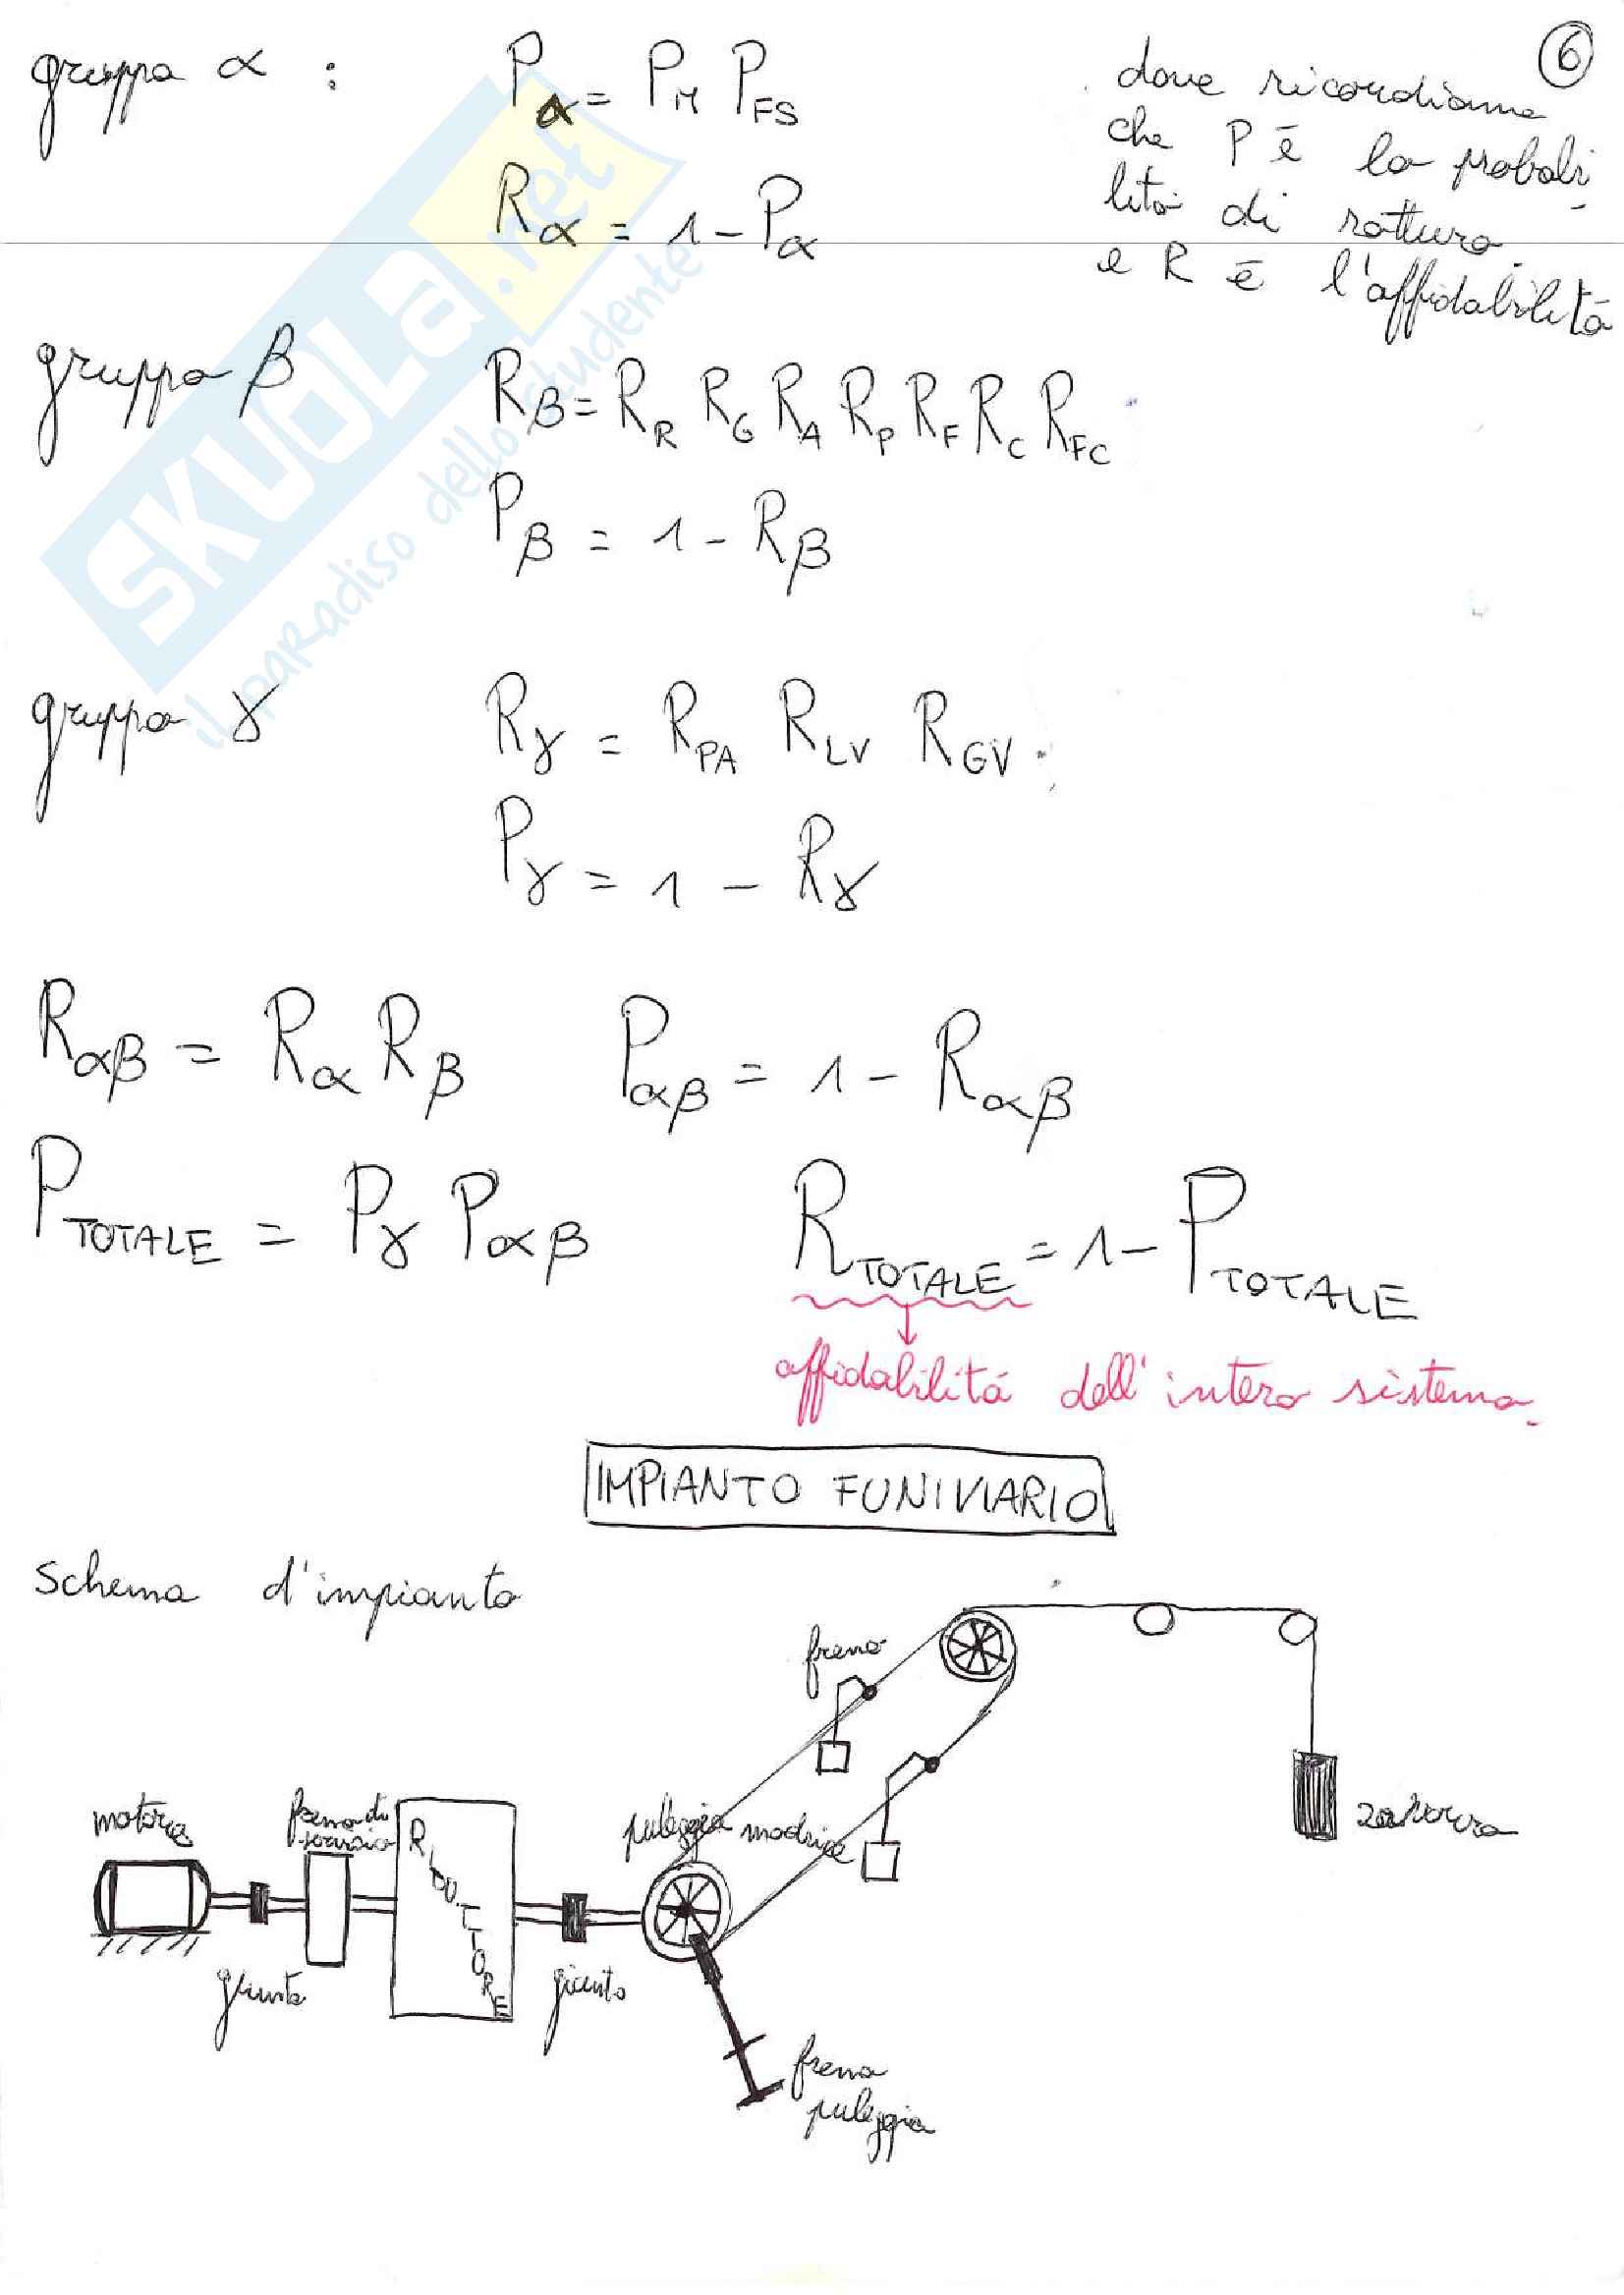 6
gruppo α : P_α = P_M P_FS
R_α = 1 - P_α
dove ricordiamo
che P è la probabi-
lità di rottura
e R è l'affidabilità
gruppo β R_β = R_R R_G R_A R_P R_F R_C R_FC
P_β = 1 - R_β
gruppo γ R_γ = R_PA R_LV R_GV .
P_γ = 1 - R_γ
R_αβ = R_α R_β P_αβ = 1 - R_αβ
P_TOTALE = P_γ P_αβ R_TOTALE = 1 - P_TOTALE
affidabilità dell'intero sistema.
IMPIANTO FUNIVIARIO
Schema d'impianto
freno
motore
freno di
servizio
RIDUTTORE
puleggia motrice
zavorra
giunto
giunto
freno
puleggia
SKUOLA.net
il paradiso dello studente